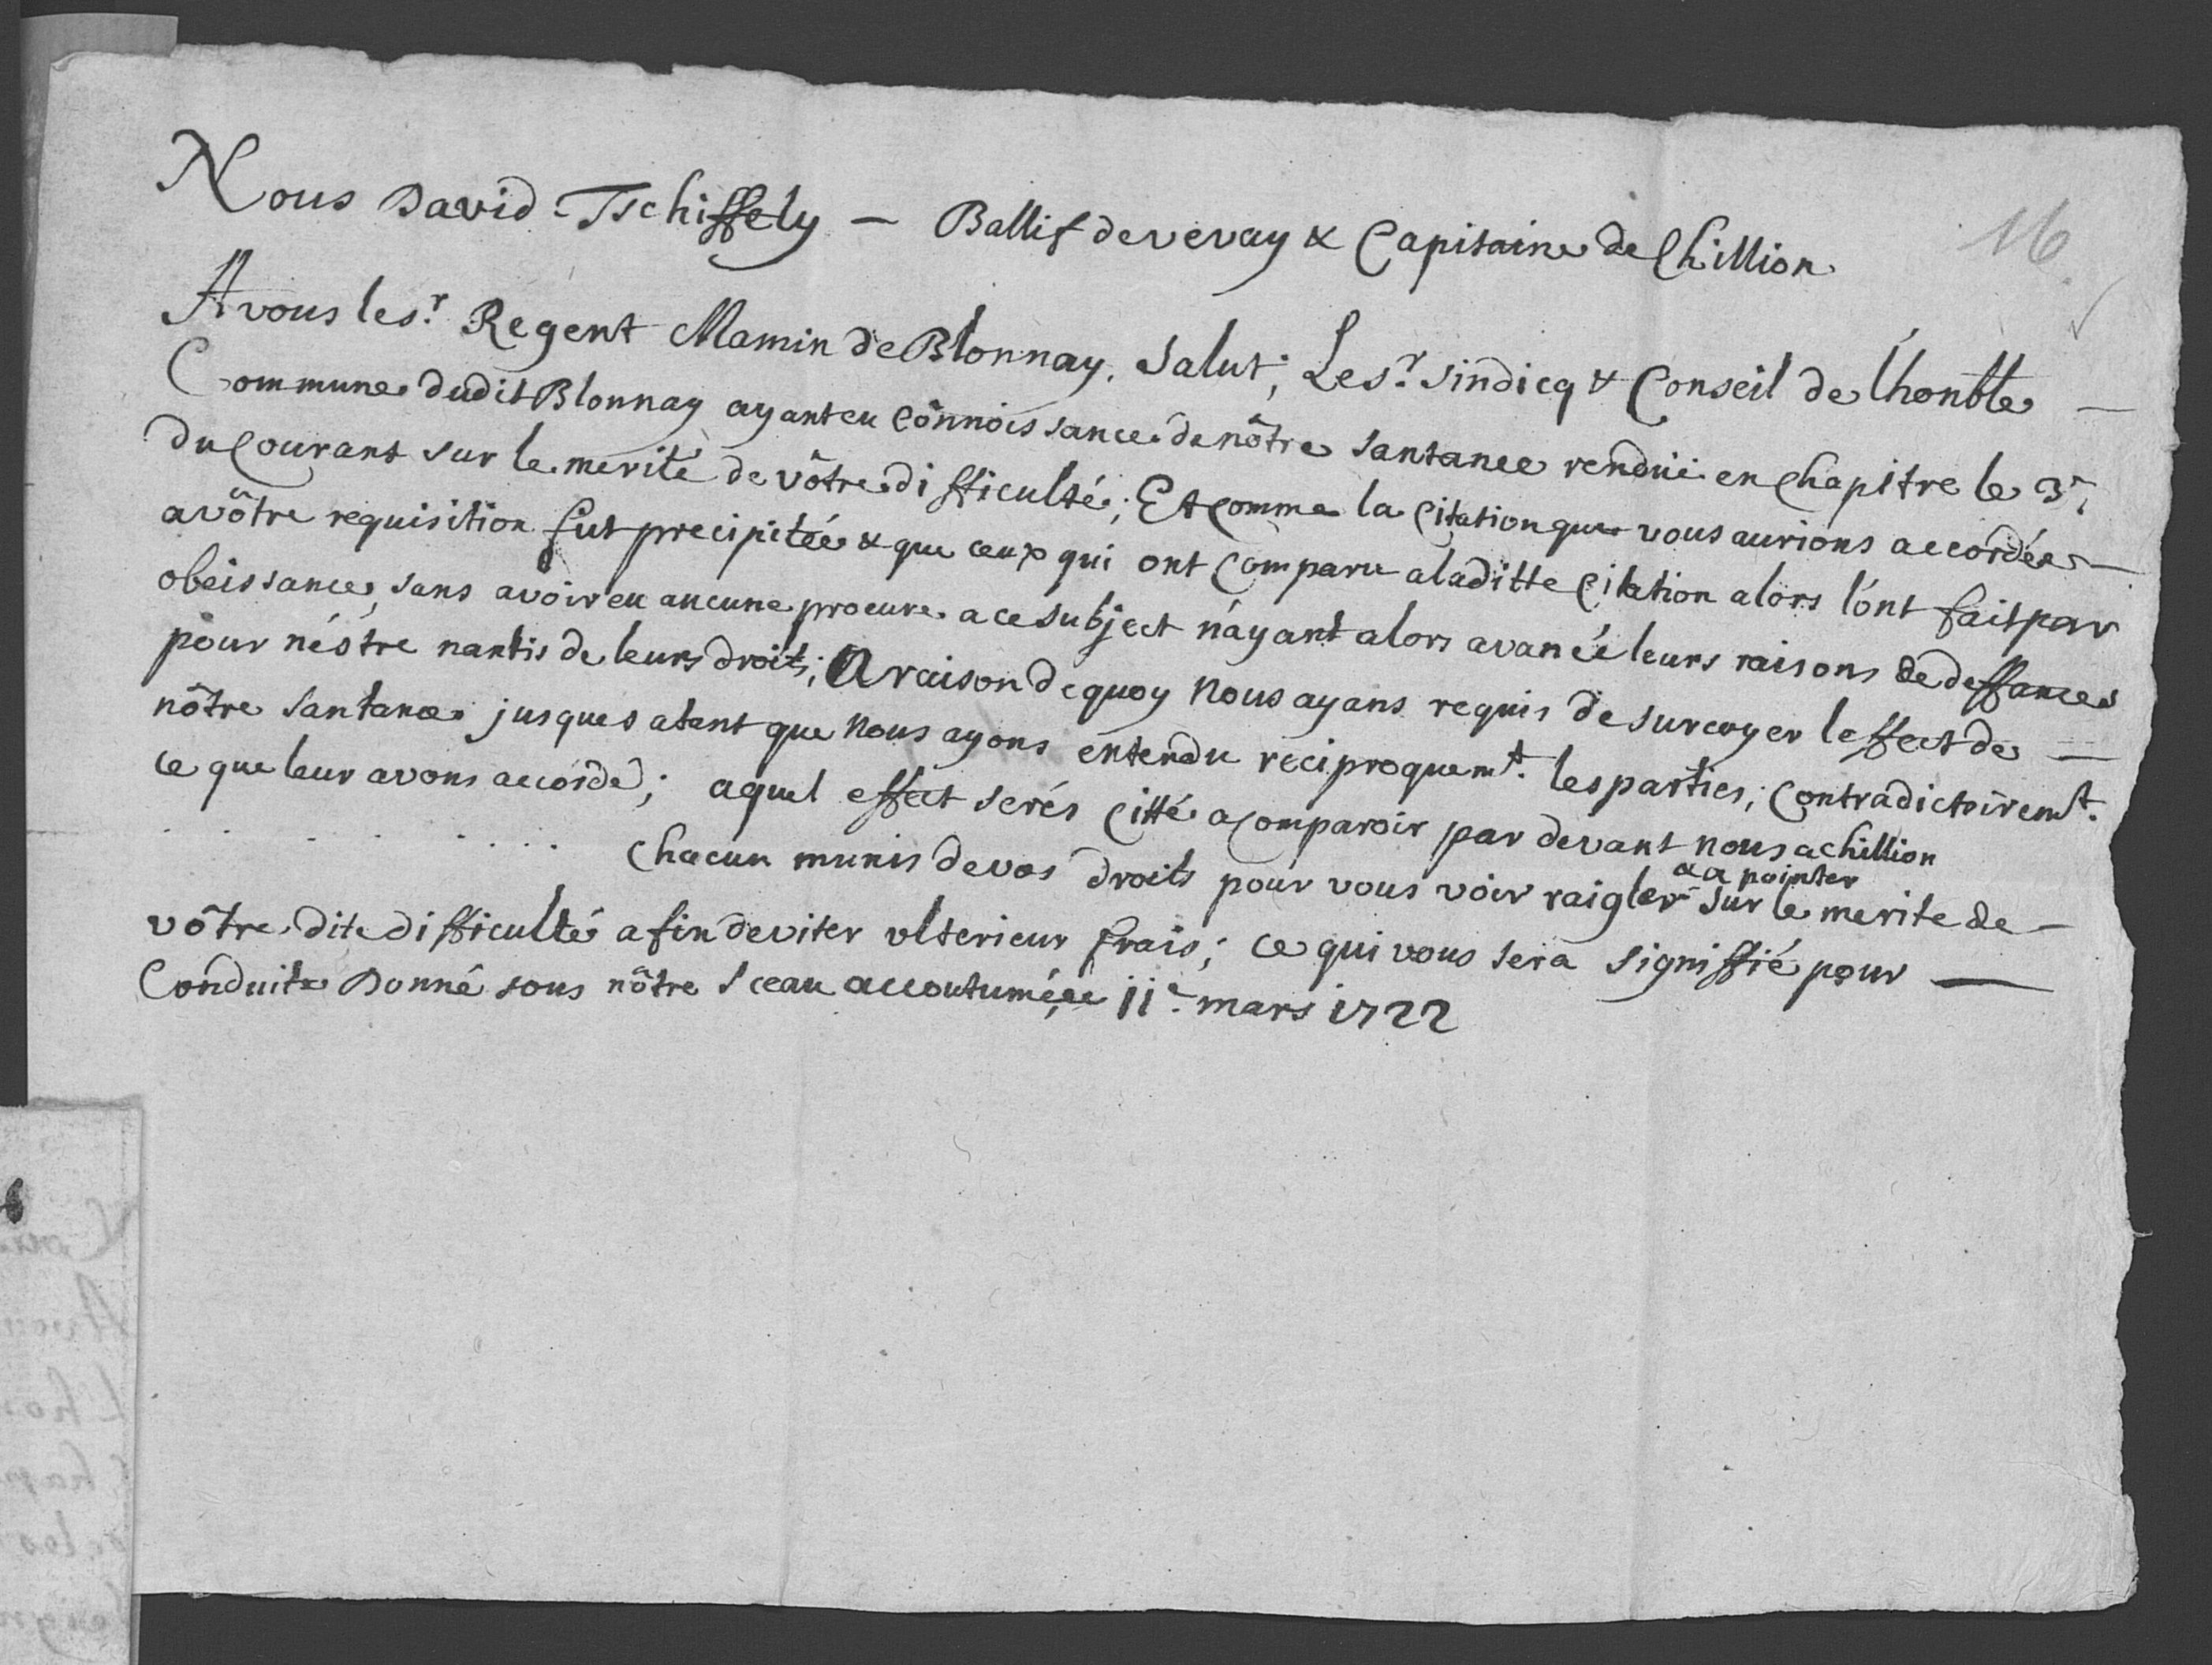 16
Nous David Tschiffely — Ballif de vevay & Capitaine de Chillion
A vous le sr. Regent Mamin de Blonnay, Salut; Le sr. Sindicq & Conseil de l'honble —
Commune dudit Blonnay ayant eu Cônnoissance de nôtre santance rendüe en Chapitre le 3e
du Courant sur le merite de vôtre difficulté; Et Comme la Citation que vous aurions accordée —
a vôtre requisition fut precipitée & que ceux qui ont Comparu a laditte Citation alors l'ont fait par
obeissance, sans avoir eu aucune procure a ce subject n'ayant alors avancé leurs raisons de deffances
pour n'éstre nantis de leurs droits; A raison dequoy Nous ayans requis de surcoyer leffect de —
nôtre santance jusques a tant que Nous ayons entendu reciproquemt. les parties, Contradictoiremt.
ce que leur avons accordé; a quel effect serés Citté a Comparoir par devant nous a Chillion
. . . . . . . Chacun munis de vos droits pour vous voir raigler & apointer sur le merite de —
vôtre dite difficulté afin deviter ulterieur frais; ce qui vous sera signiffié pour —
Conduite Donné sous nôtre Sceau accoutumé, ce 11e. mars 1722